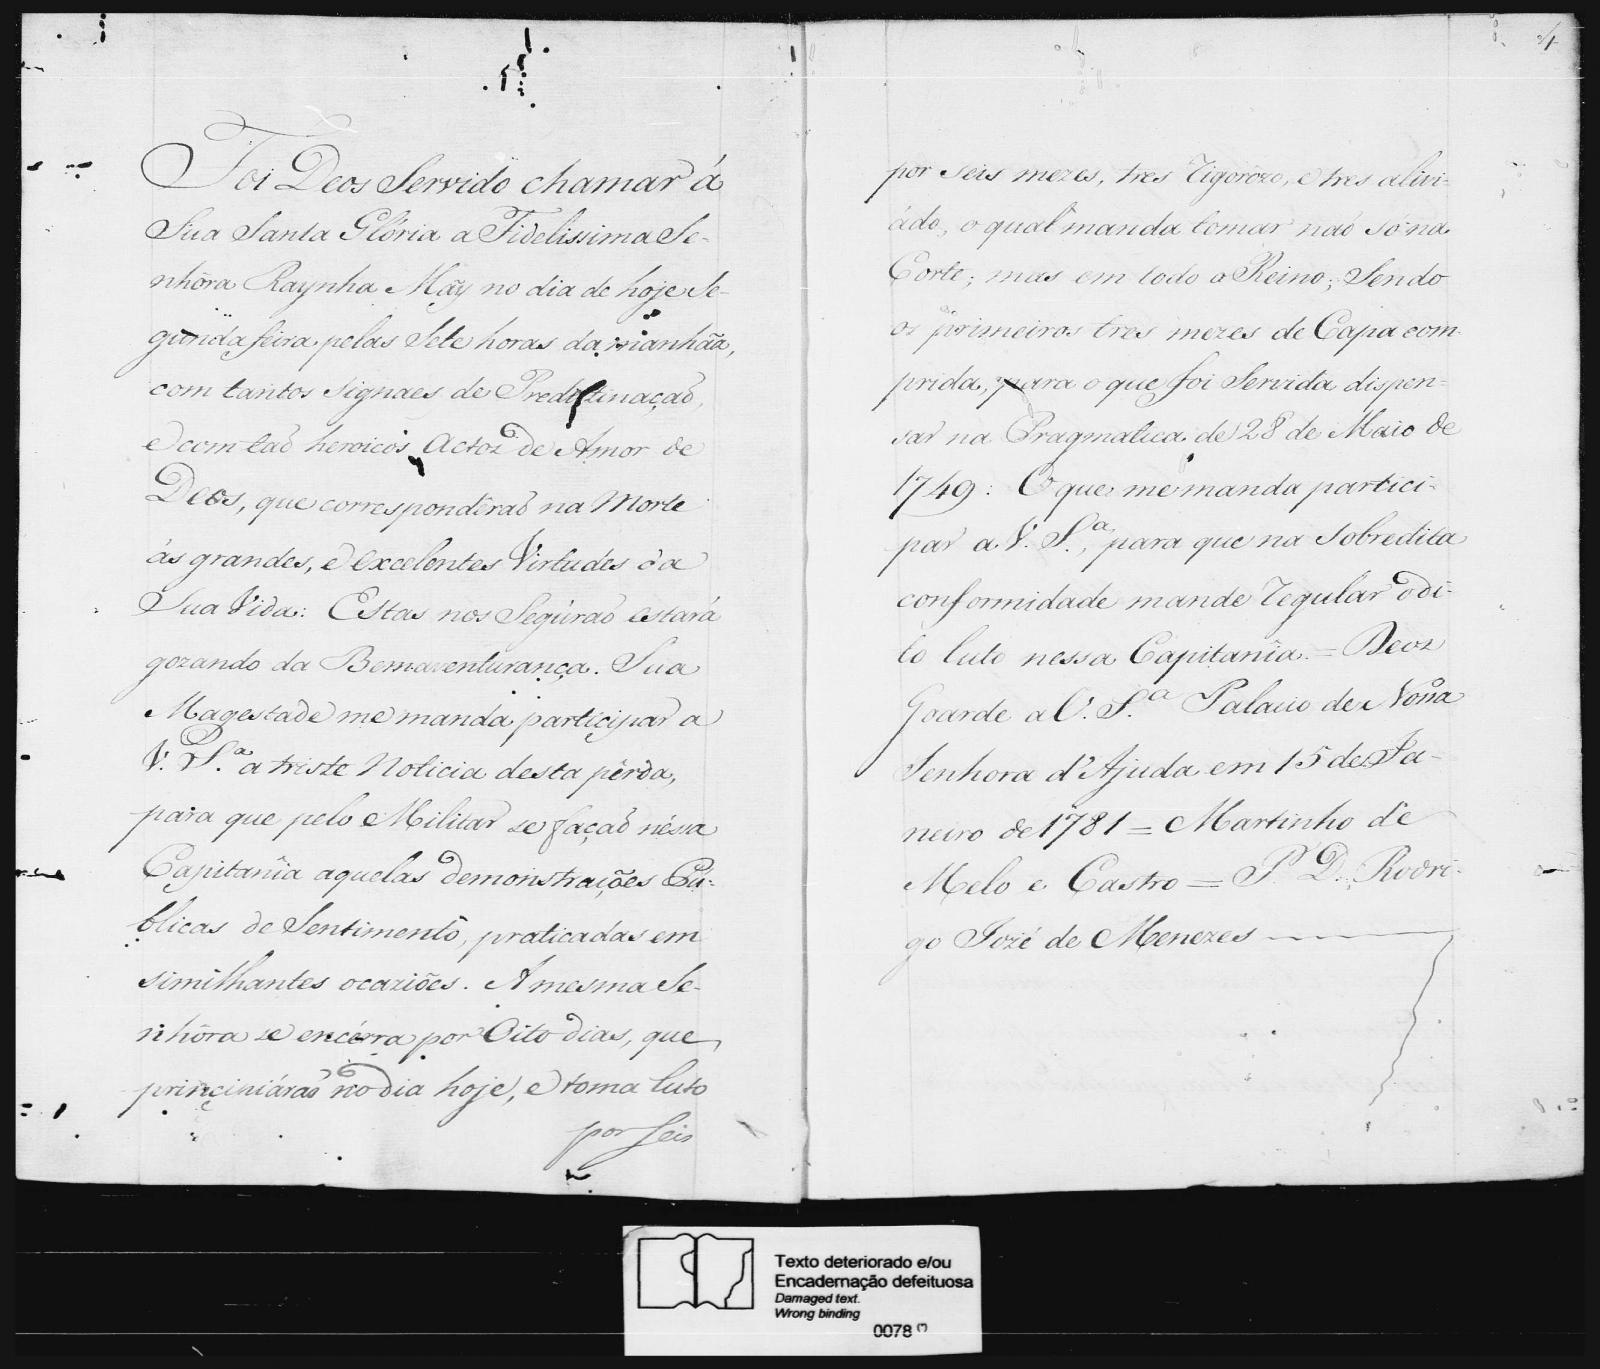 Foi Deos Servido chamar á
Sua Santa Glória a Fidelissima Se-
nhôra Raynha Mãy no dia de hoje Se-
gunda feira pelas Sete horas da manhãa,
com tantos signaes de Predistinaçaõ,
e com taõ heroicos Actos de Amor de
Deos, que correspondêraõ na Morte
ás grandes, e excelentes Virtudes da
Sua Vida: Estas nos Seguraõ estará
gozando da Bemaventurança. Sua
Magestade me manda participar a
V. S.ª a triste Noticia desta pêrda,
para que pelo Militar se façaõ néssa
Capitanîa aquelas demonstrações Pú-
blicas de Sentimento, praticadas em
similhantes ocaziões. A mesma Se-
nhôra se encérra por Oito dias, que
princiniáraõ no dia hoje, e toma luto
por seis
4
por seis mezes, tres rigorôzo, e tres alivi-
ádo, o qual manda tomar naõ só na
Corte; mas em todo o Reino; Sendo
os primeiros tres mezes de Capa com-
prida, para o que foi Servida dispen-
sar na Pragmatica de 28 de Maio de
1749: O que me manda partici-
par a V. S.ª, para que na sobredita
conformidade mande regular o di-
to luto nessa Capitanîa = Deos
Goarde a V. S.ª Palacio de Nossa
Senhora d'Ajuda em 15 de Ja-
neiro de 1781 = Martinho de
Melo e Castro = S.r D. Rodri-
go Jozé de Menezes
Texto deteriorado e/ou
Encadernação defeituosa
Damaged text.
Wrong binding
0078 (*)